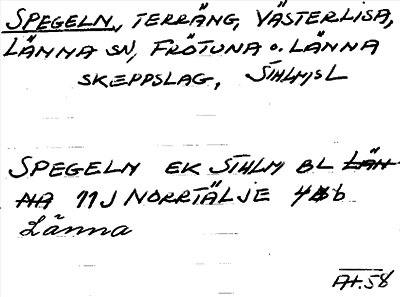 SPEGELN, TERRÄNG, VÄSTERLISA,
LÄNNA SN, FRÖTUNA O. LÄNNA
SKEPPSLAG, STHLMSL
SPEGELN EK STHLM BL LÄN-
NA 11J NORRTÄLJE 4b
Länna
At.58